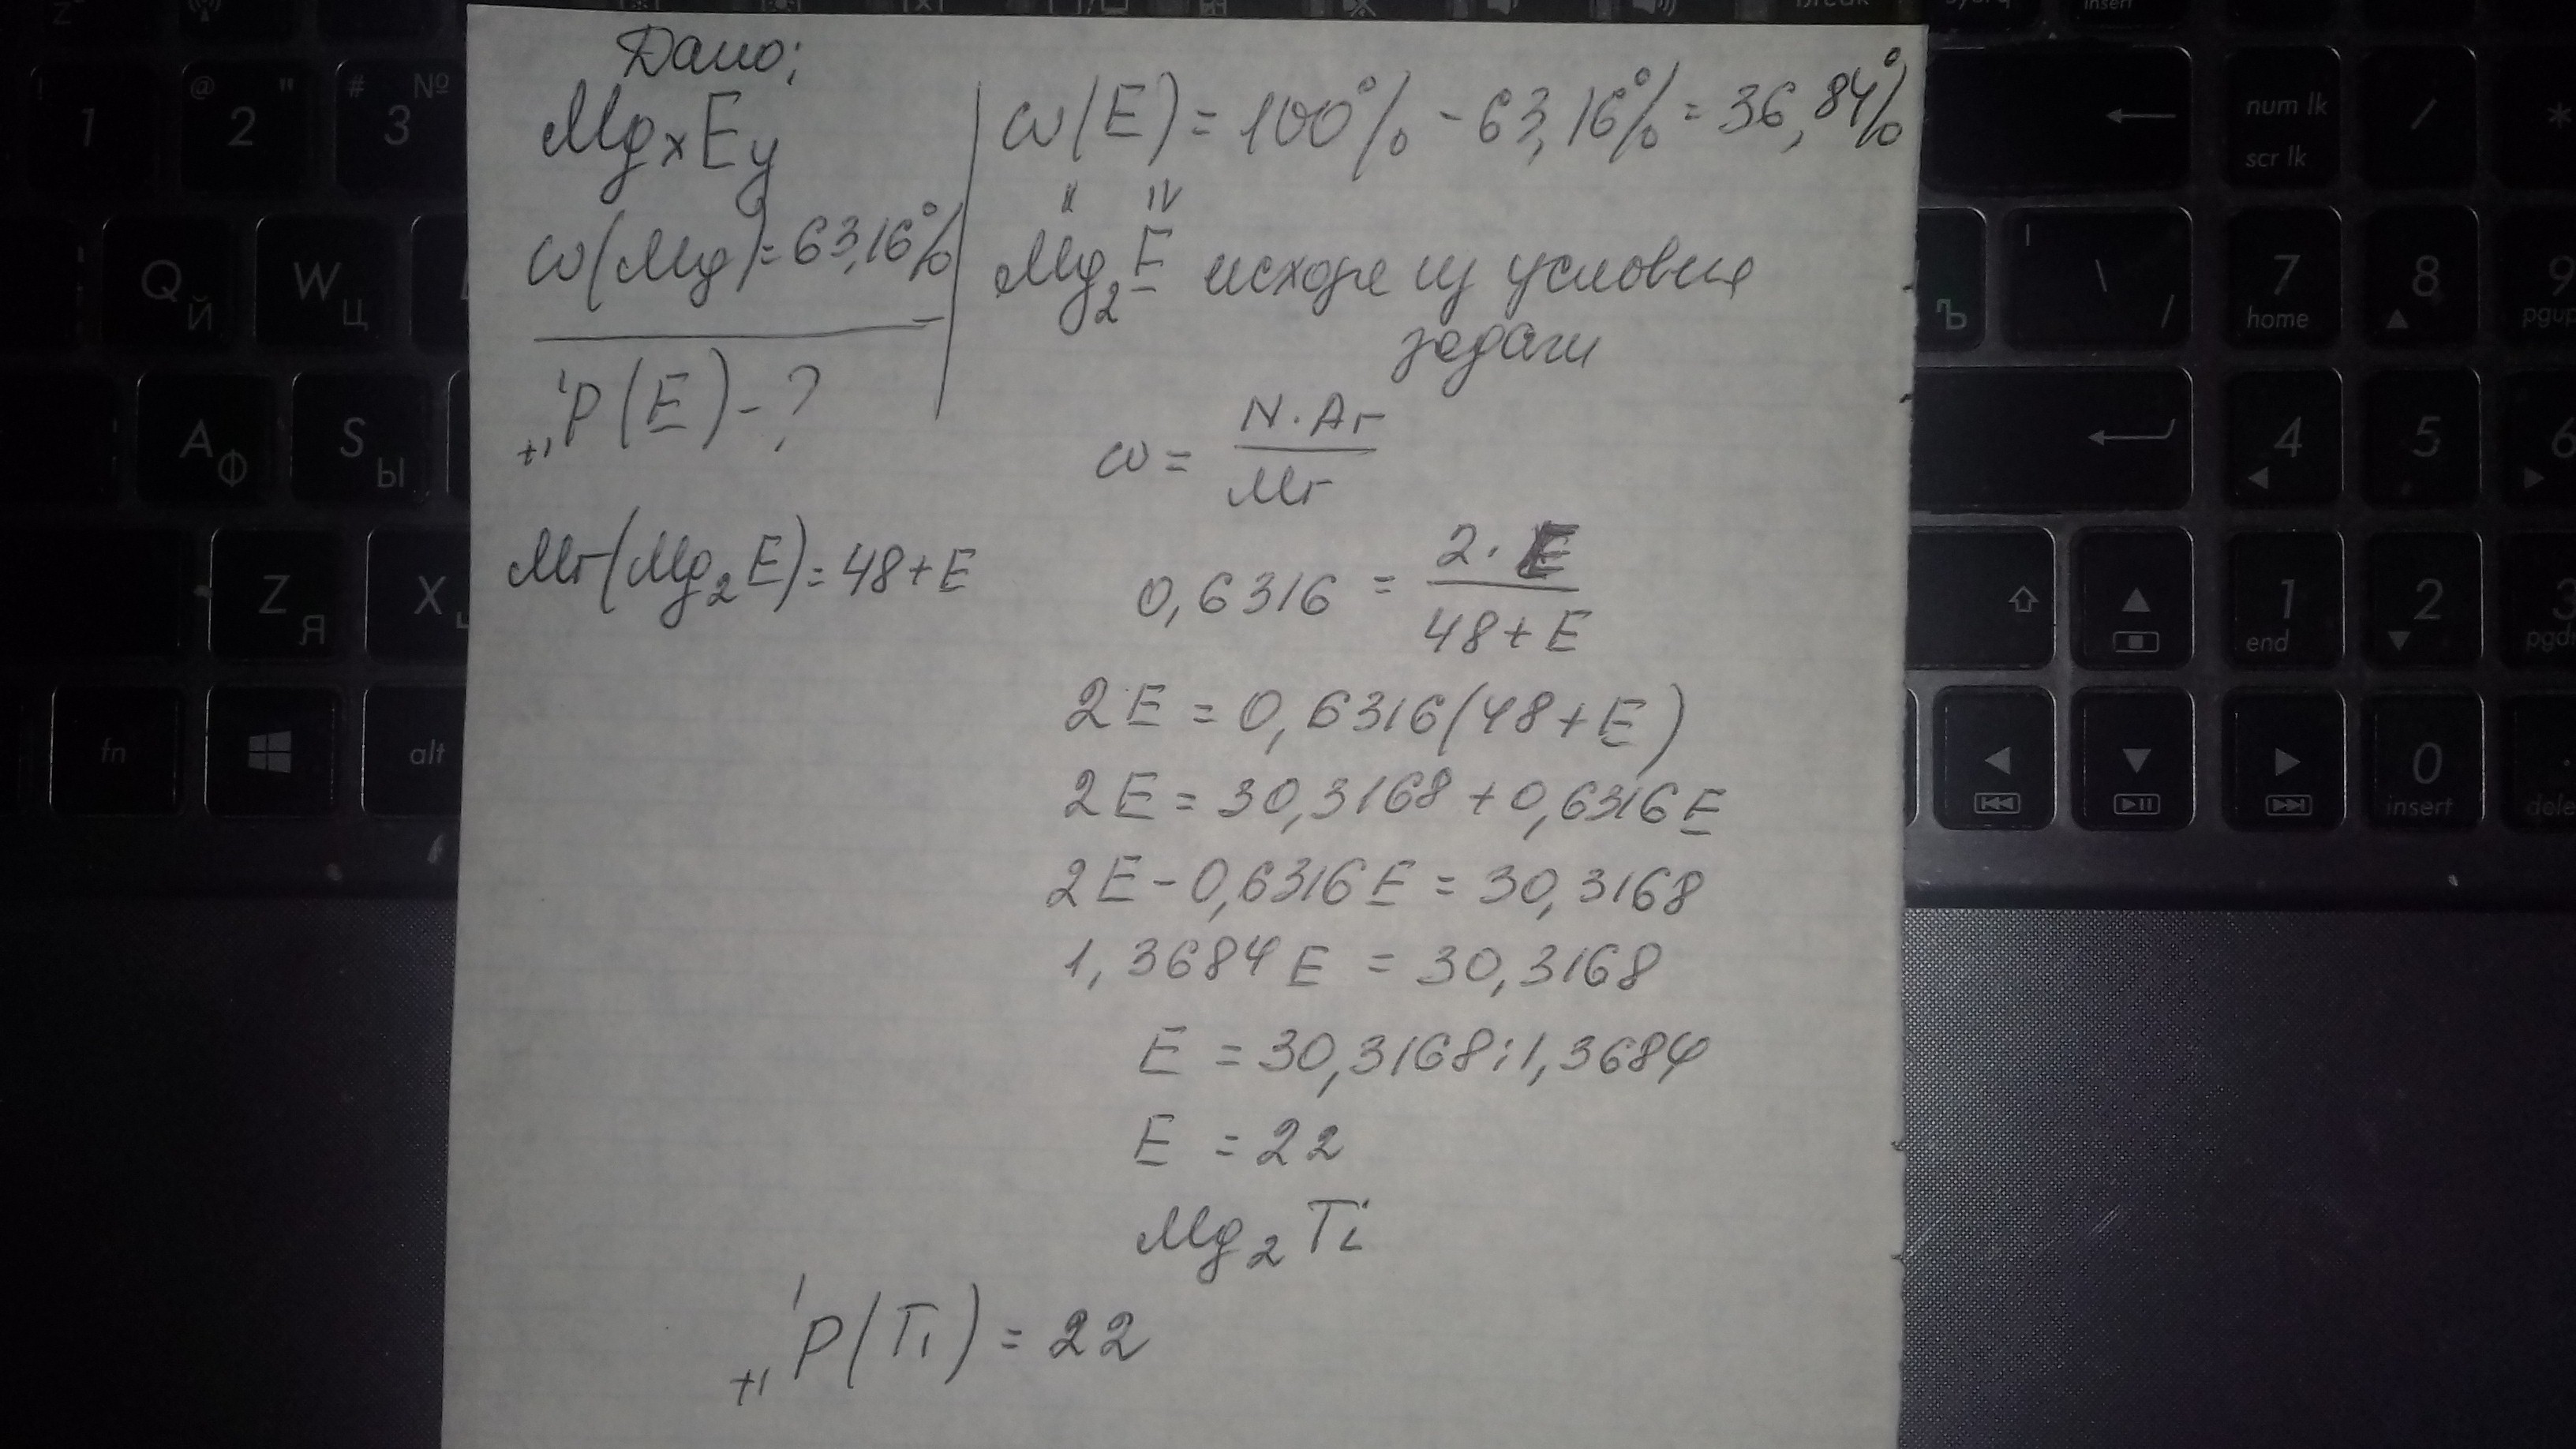 Дано:
MgxEy
ω(Mg)=63,16%
₊₁¹P(E)-?
Mr(Mg₂E)=48+E
ω(E)=100%-63,16%=36,84%
II IV
Mg₂E исходя из условия
задачи
ω= N·Ar
Mr
0,6316 = 2·E
48+E
2E = 0,6316(48+E)
2E = 30,3168 + 0,6316E
2E - 0,6316E = 30,3168
1,3684E = 30,3168
E = 30,3168:1,3684
E = 22
Mg₂Ti
₊₁¹P(Ti) = 22
1
@ "
2
# №
3
Q Й
W Ц
A Ф
S Ы
Z Я
X
fn
alt
Break
insert
num lk
scr lk
/
*
Ъ
| \ /
7
home
8
9
pgup
4
5
6
1
end
2
3
pgd
0
insert
dele